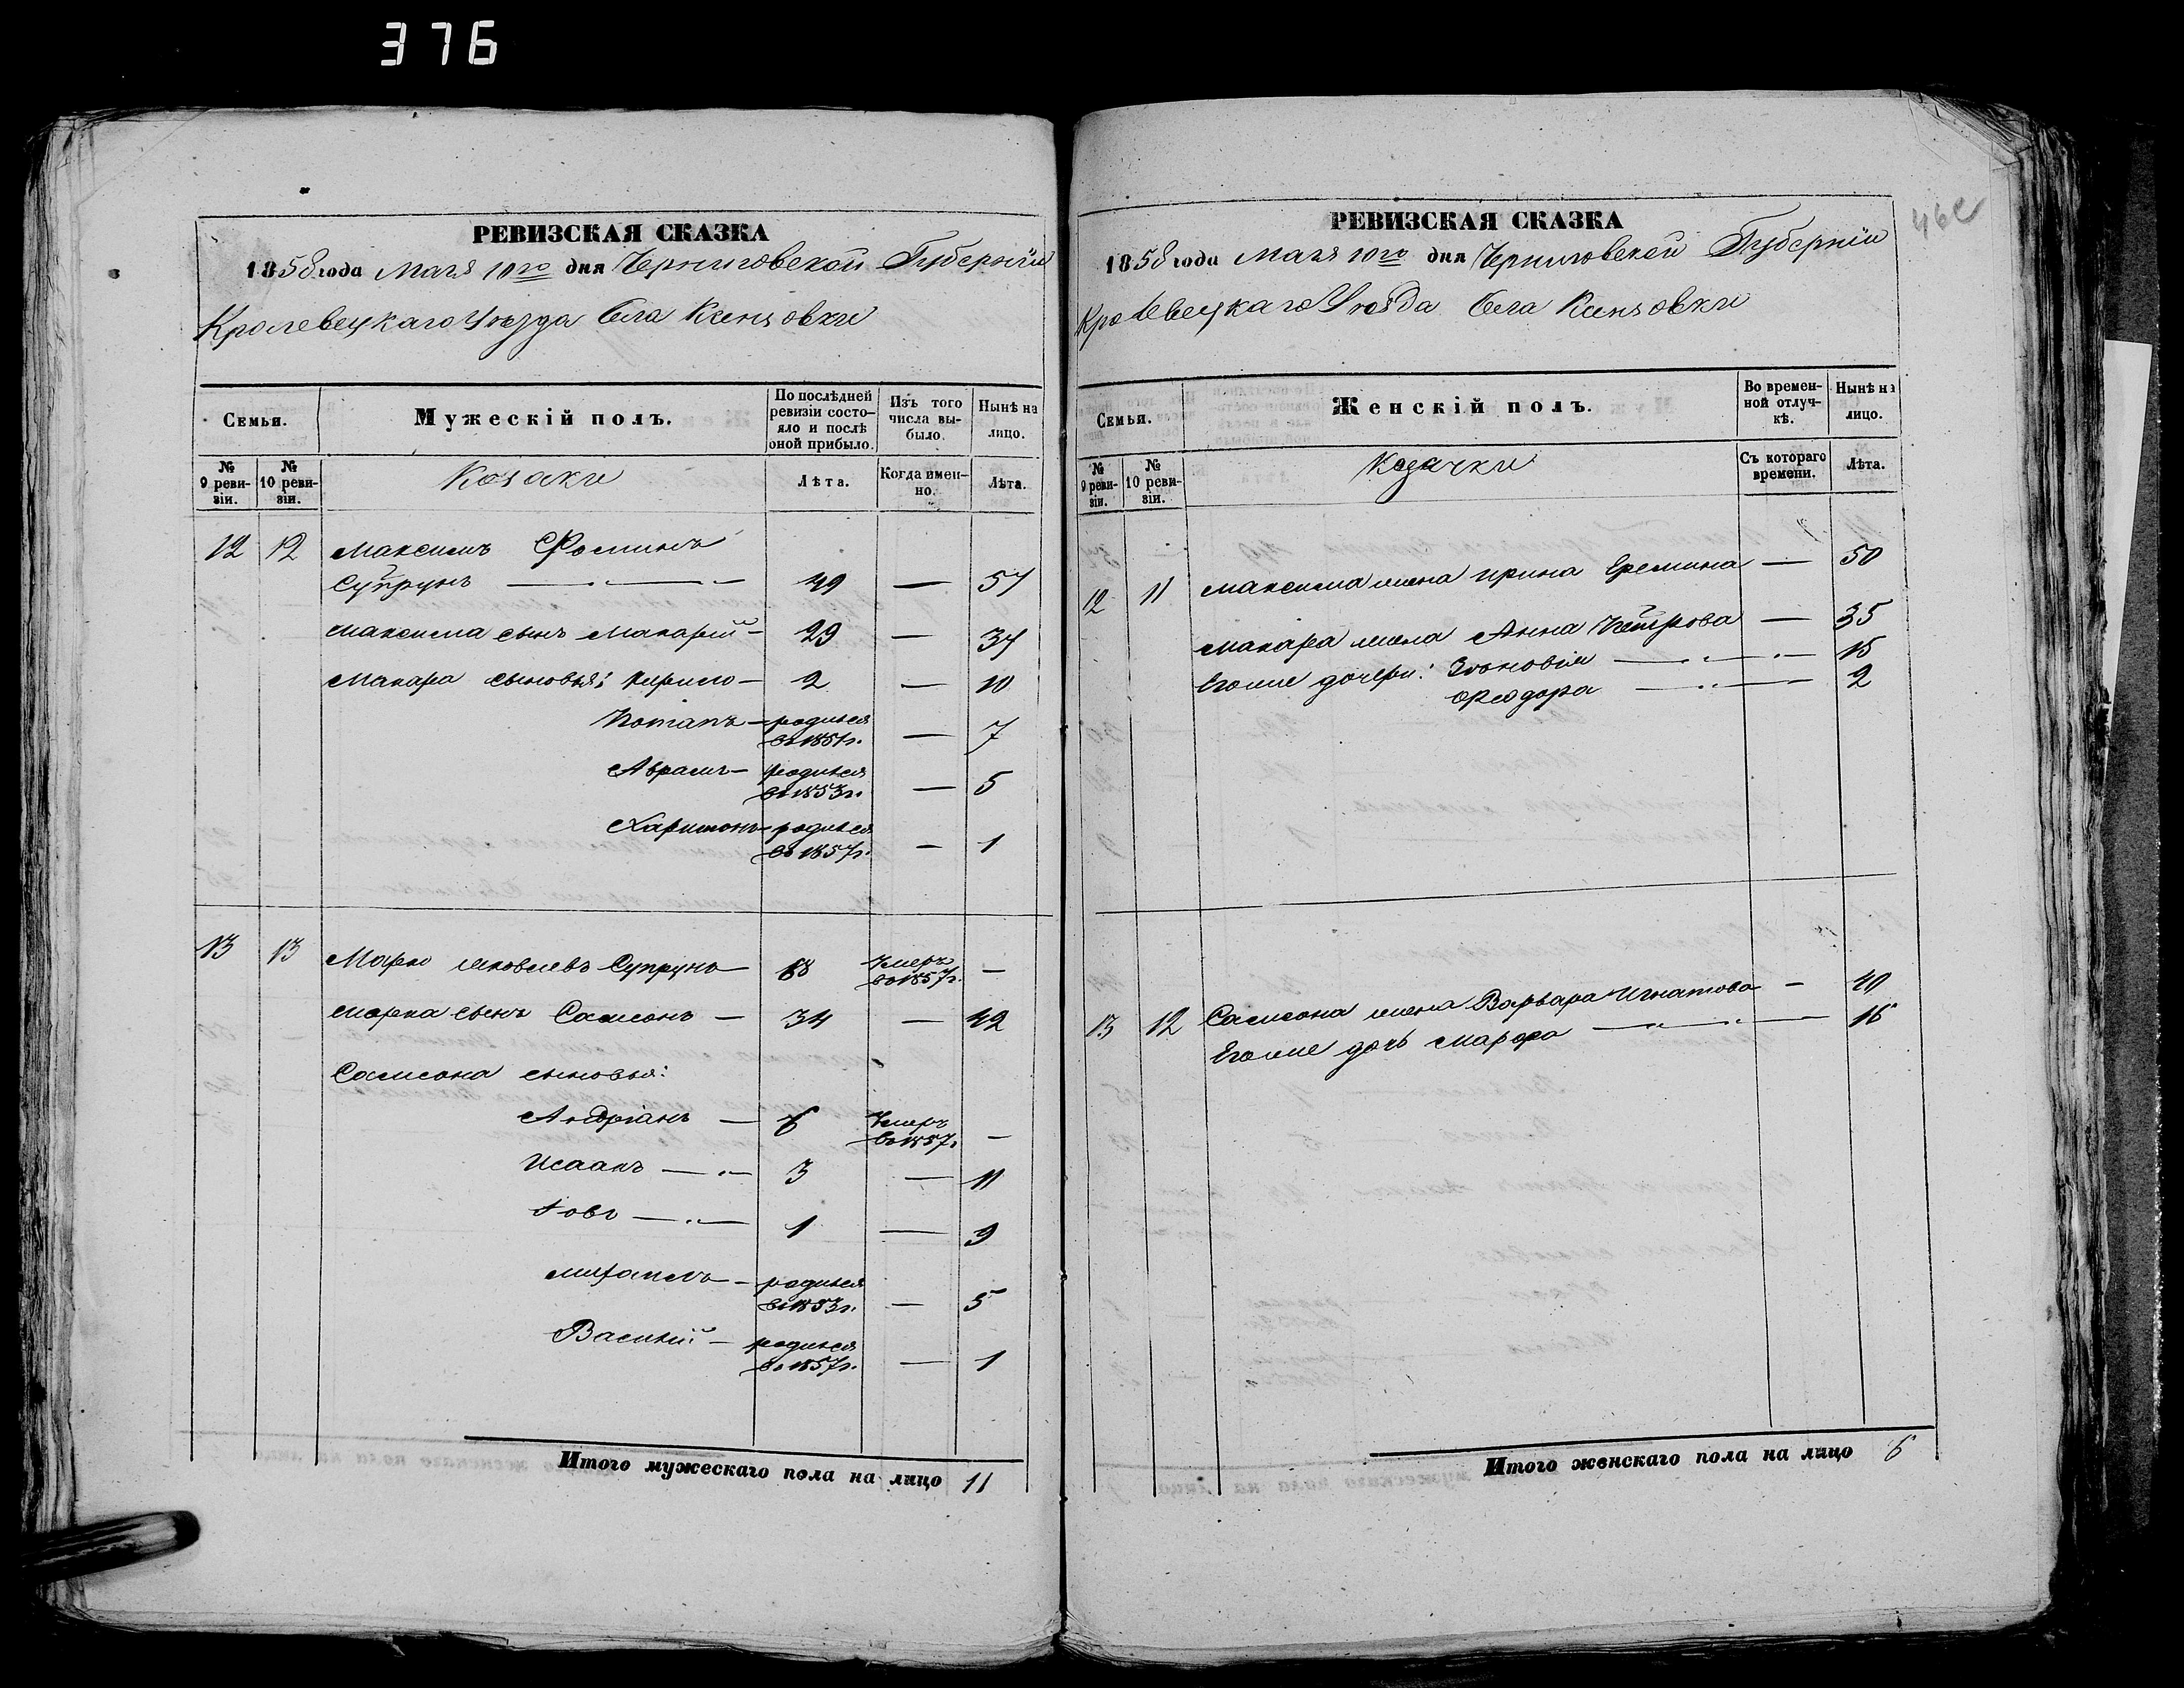 376
РЕВИЗСКАЯ СКАЗКА
1858 года Мая 10го дня Черниговской Губерніи
Кролевецкаго Уѣзда Села
Семьи.
Мужескій полъ.
По послѣдней ревизіи состояло и послѣ оной прибыло.
Изъ того числа выбыло.
Нынѣ на лицо.
№ 9 ревизіи.
№ 10 ревизіи.
Козаки
Лѣта.
Когда именно.
Лѣта.
12 12 Максимъ Фоминъ
Супрунъ — 49 — 57
Максима сынъ Макарій — 29 — 37
Макара сыновья: Кирило — 2 — 10
Потапъ — родился
въ 1851 г. — 7
Аврамъ — родился
въ 1853 г. — 5
Харитонъ — родился
въ 1857 г. — 1
13 13 Марко Яковлевъ Супрунъ — 68 Умеръ
въ 1857 г. —
Марка сынъ Самсонъ — 34 — 42
Самсона сыновья:
Андріанъ — 6 Умеръ
въ 1857 г. —
Исаакъ — 3 — 11
Іовъ — 1 — 9
Михаилъ — родился
въ 1853 г. — 5
Василій — родился
въ 1857 г. — 1
Итого мужескаго пола на лицо 11
РЕВИЗСКАЯ СКАЗКА
1858 года Мая 10го дня Черниговской Губерніи
Кролевецкаго Уѣзда Села
Семьи.
Женскій полъ.
Во временной отлучкѣ.
Нынѣ на лицо.
№ 9 ревизіи.
№ 10 ревизіи.
Козачки
Съ котораго времени.
Лѣта.
12 11 Максима жена Ирина Еремина — 50
Макара жена Анна Петрова — 35
Егоже дочери: Зѣновія — 15
Ѳеодора — 2
13 12 Самсона жена Варвара Игнатова — 40
Егоже дочь Марфа — 16
Итого женскаго пола на лицо 6